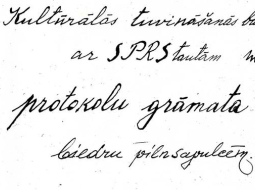 Kultūrālās tuvināšanās
ar SPRS tautām
protokolu grāmata
biedru pilnsapulcēm.